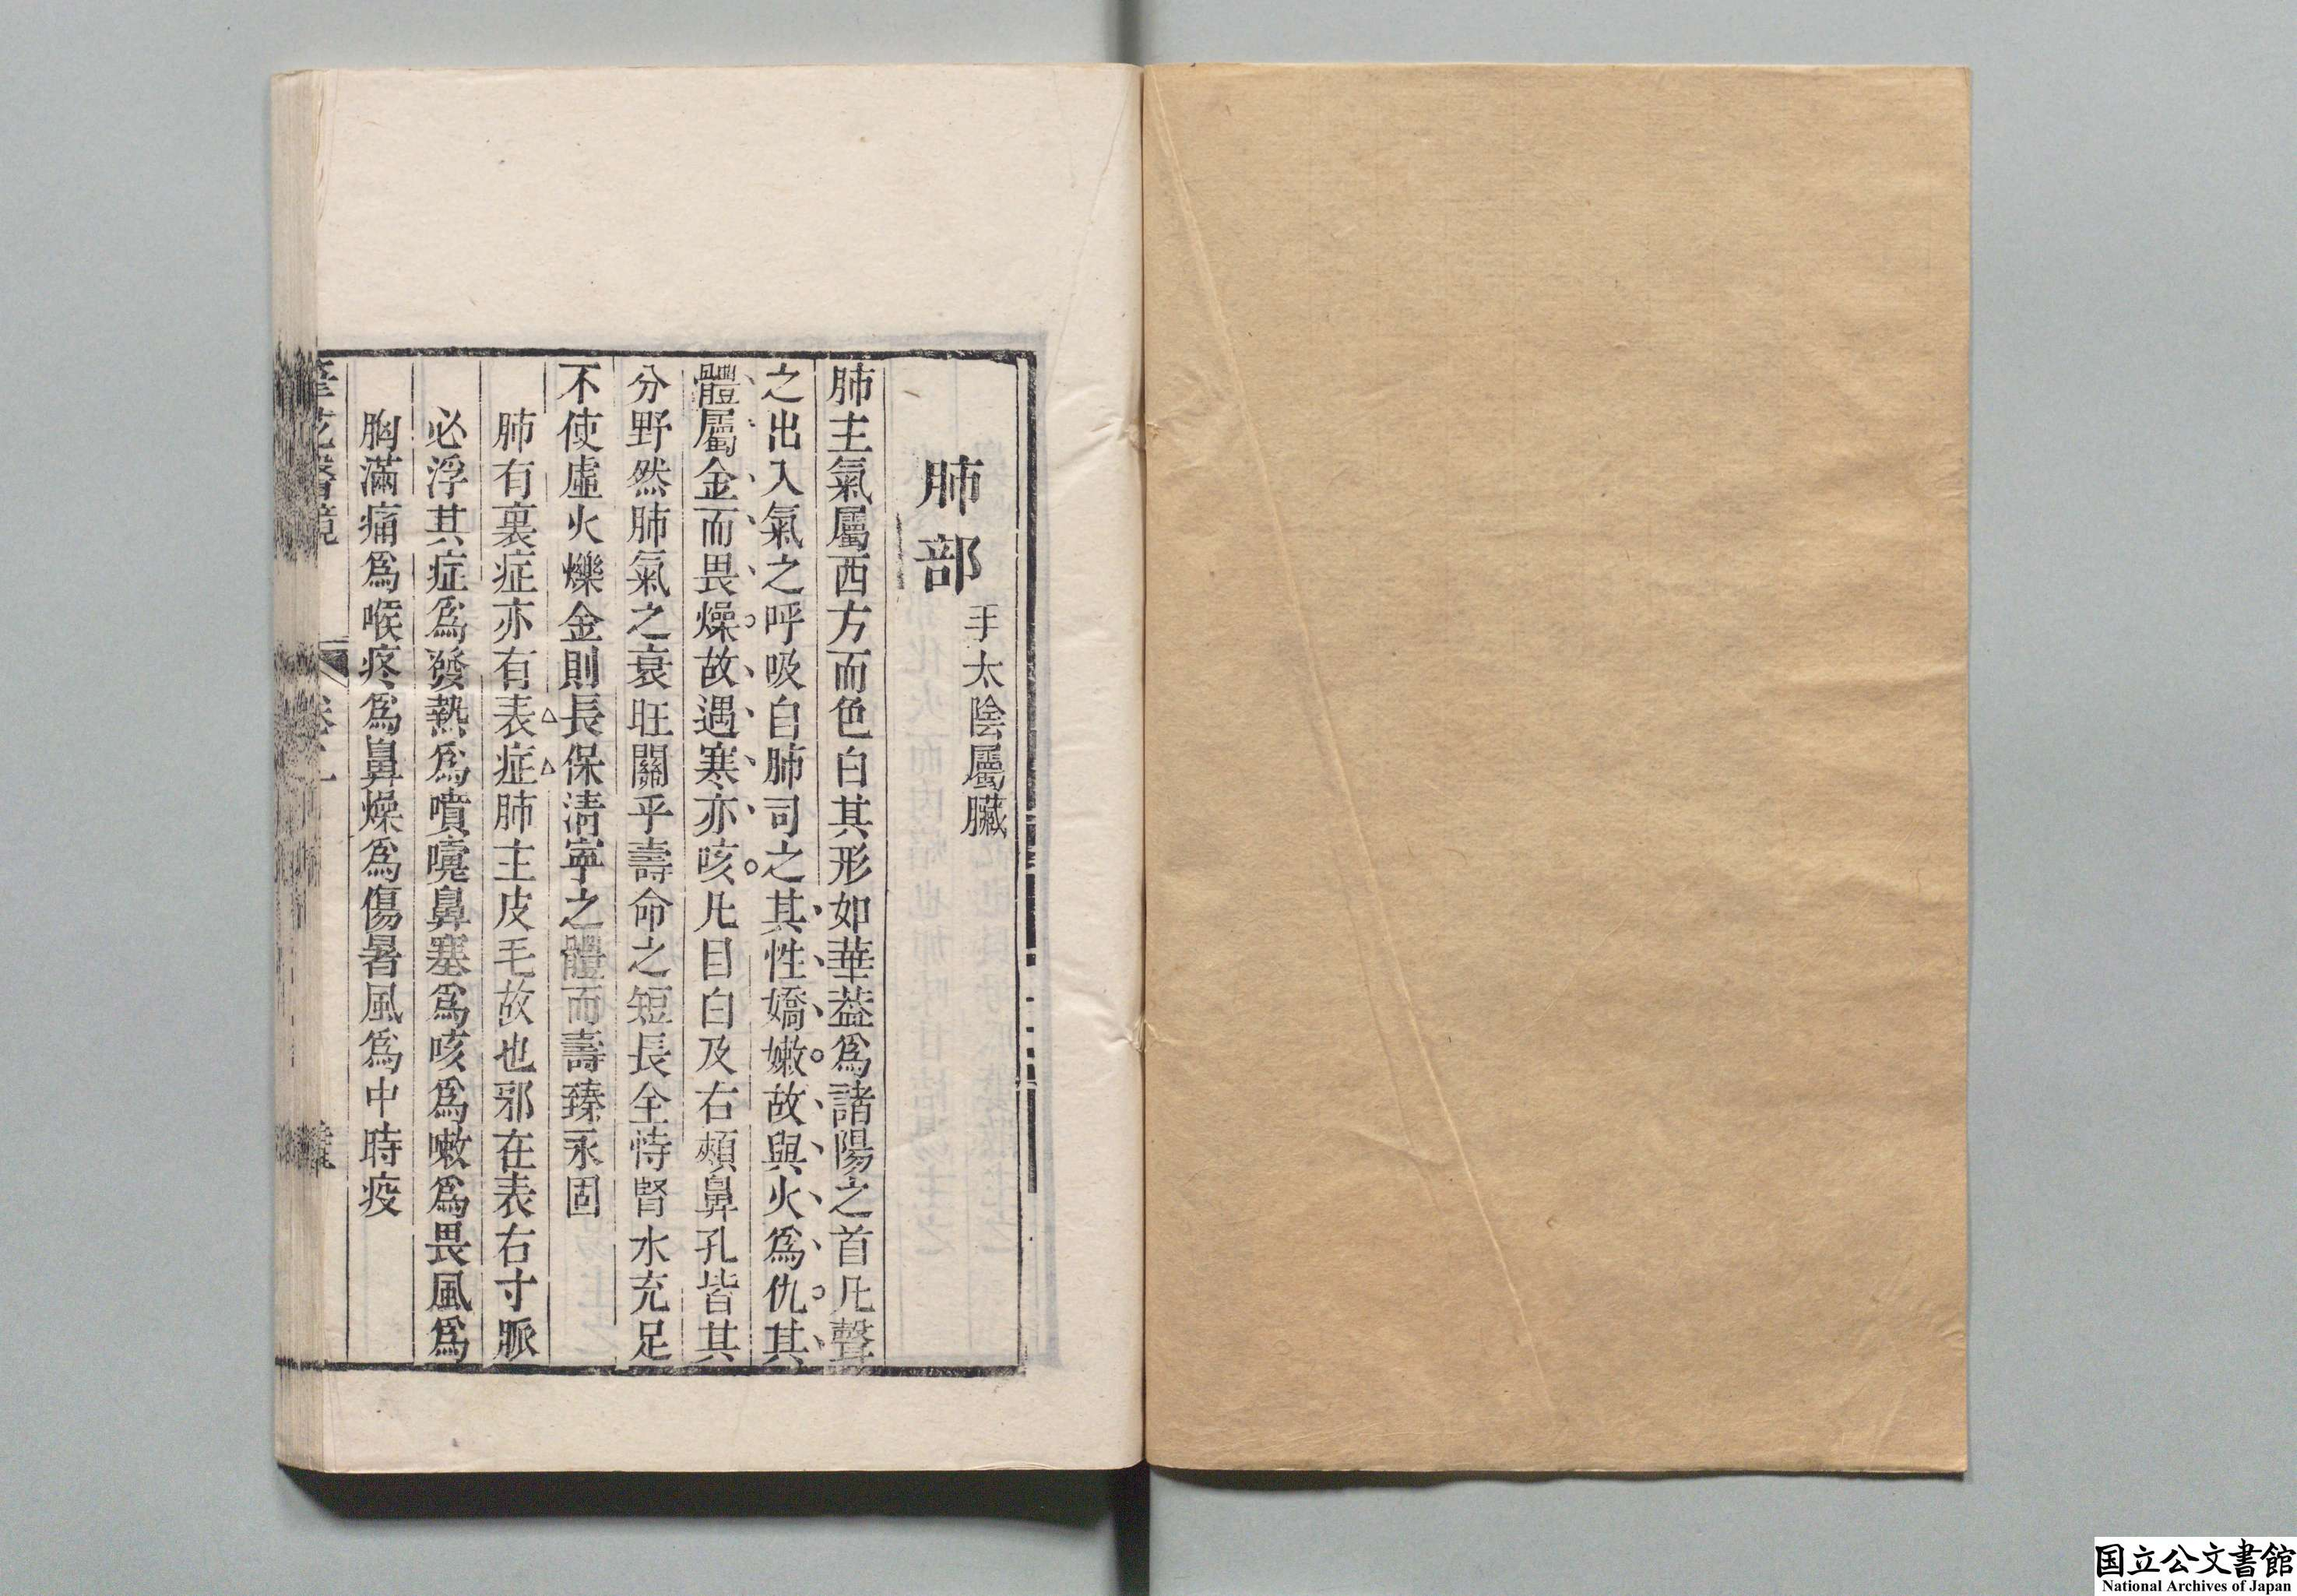 肺部 手太陰屬臟
肺主氣屬西方而色白其形如華葢爲諸陽之首凡聲
之出入氣之呼吸自肺司之其性嬌嫩故與火爲仇其
體屬金而畏燥故遇寒亦咳凡目白及右頰鼻孔皆其
分野然肺氣之衰旺關乎壽命之短長全恃腎水充足
不使虛火爍金則長保清寧之體而壽臻永固
肺有裏症亦有表症肺主皮毛故也邪在表右寸脈
必浮其症爲發熱爲噴嚏鼻塞爲咳爲嗽爲畏風爲
胸滿痛爲喉疼爲鼻燥爲傷暑風爲中時疫
筆花醫鏡 卷二
国立公文書館
National Archives of Japan